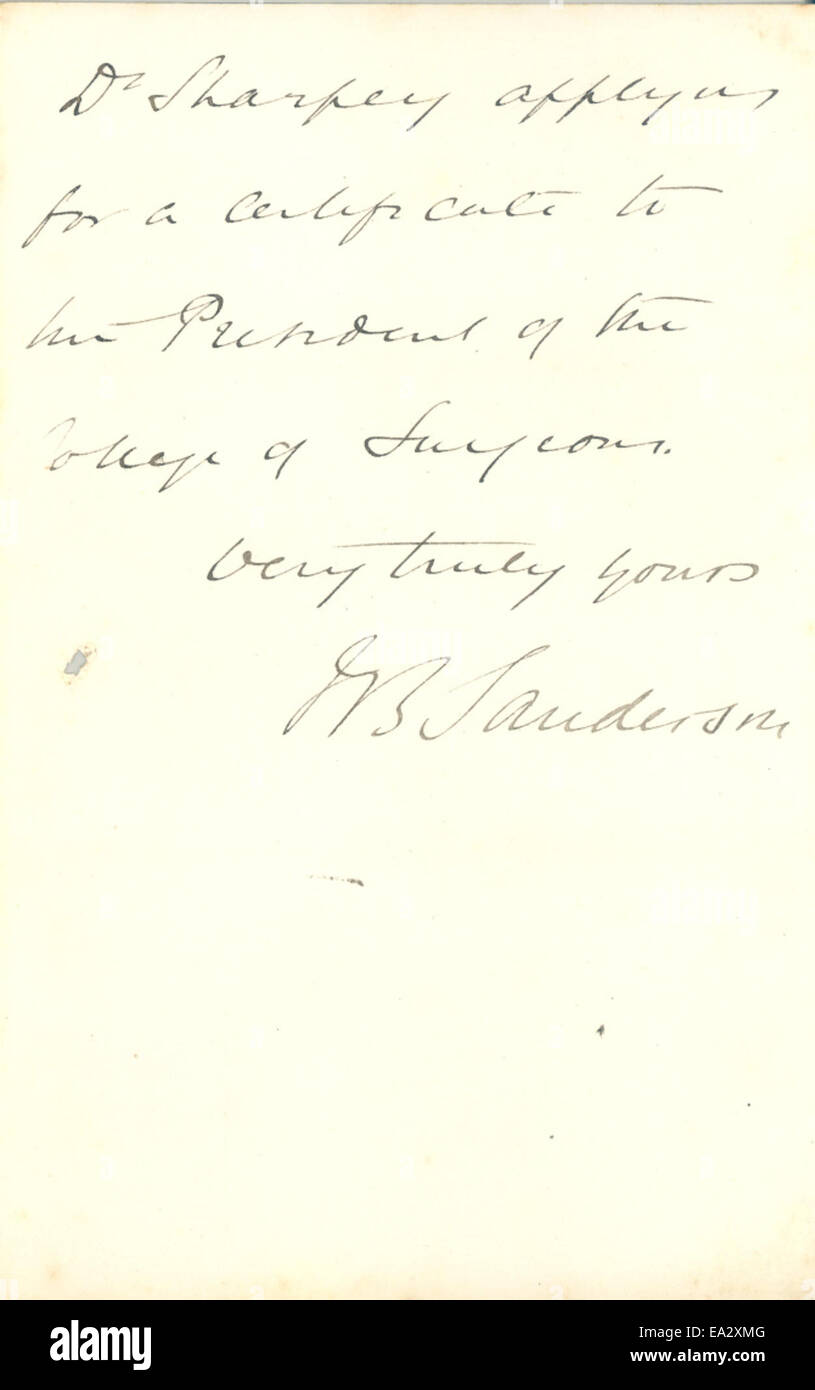 Dr Sharpey applying
for a certificate to
the President of the
College of Surgeons.
Very truly yours
JB Sanderson
alamy
alamy
Image ID: EA2XMG
www.alamy.com